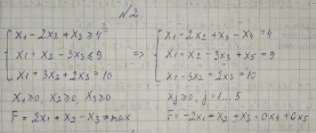 N 2
x1 - 2x2 + x3 ≥ 4 x1 - 2x2 + x3 - x4 = 4
x1 + x2 - 3x3 ≤ 9 => x1 + x2 - 3x3 + x5 = 9
x1 + 3x2 + 2x3 = 10 x1 + 3x2 + 2x3 = 10
x1 ≥ 0, x2 ≥ 0, x3 ≥ 0 xj ≥ 0, j = 1...5
F = 2x1 + x2 - x3 → max F = -2x1 - x2 + x3 + 0x4 + 0x5